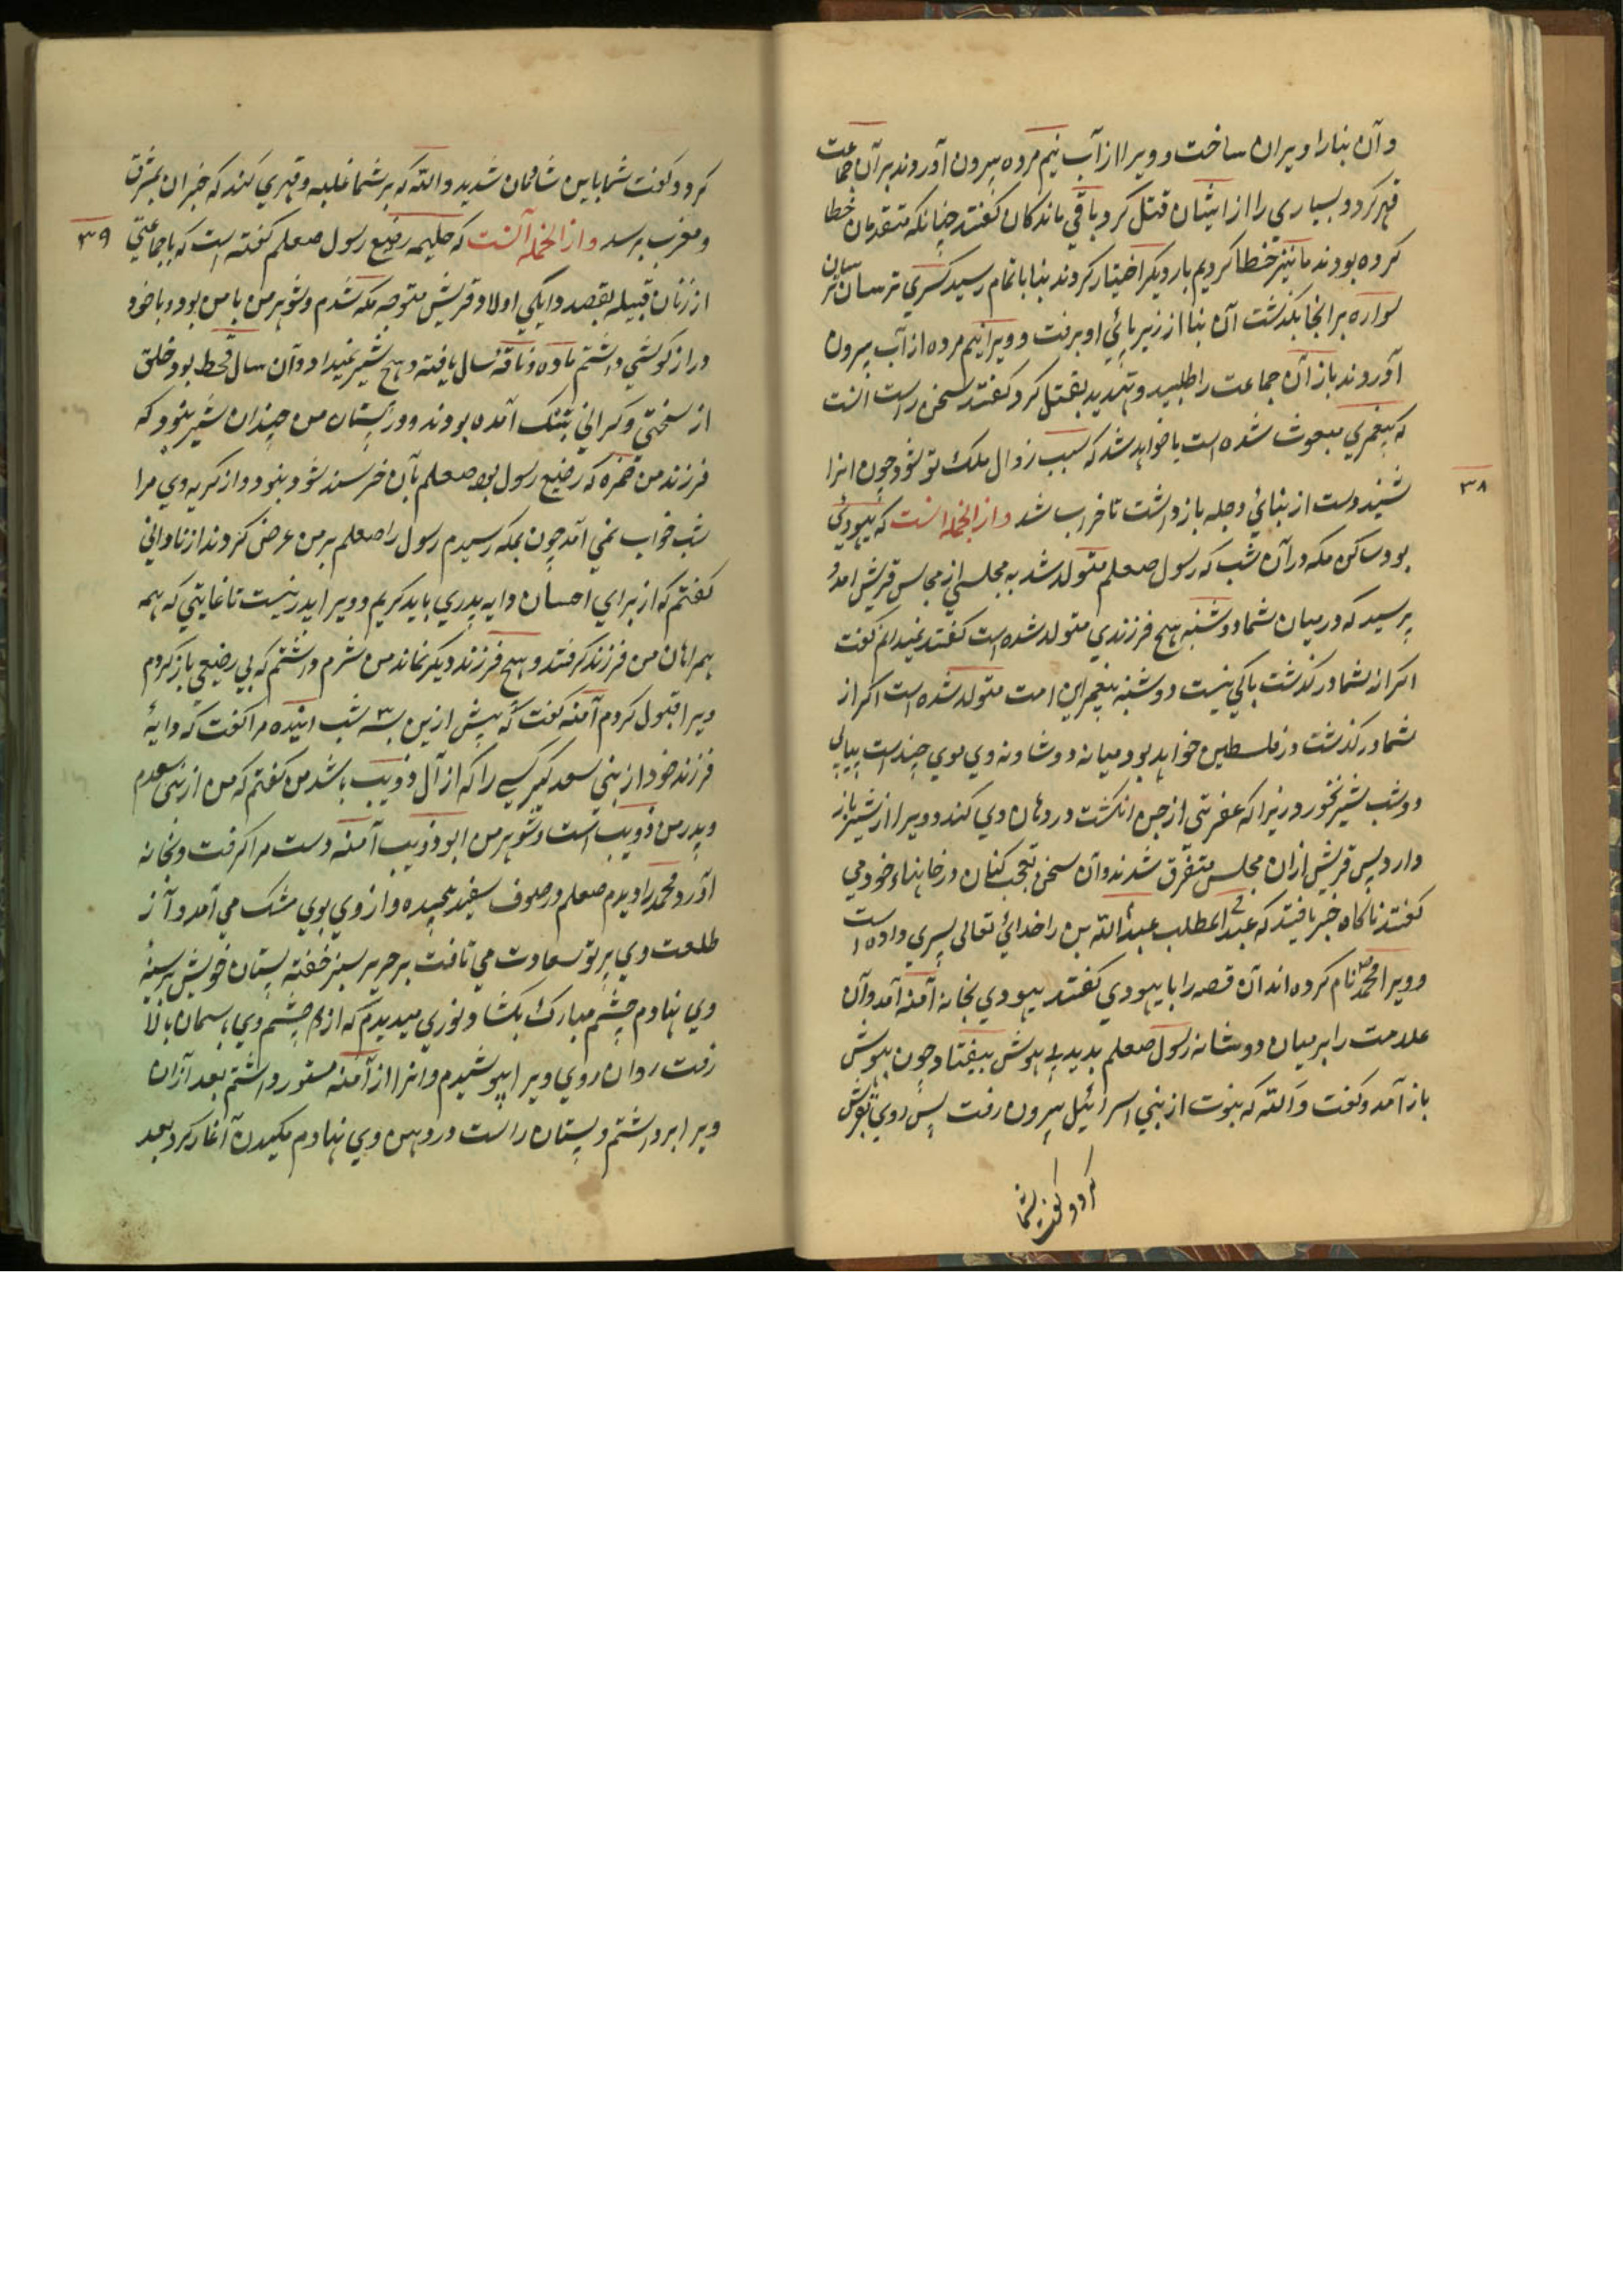 وآن بنا را ویران ساخت و ویرا از آب نیم مرده بیرون آوردند بر آن جماعت
قهر کرد و بسیاری را از ایشان قتل کرد باقی ماندکان کفتند چنانکه متقدمان خطا
کرده بودند ما نیز خطا کردیم بار دیکر اختیار کردند بنا باتمام رسید کسری ترسان ترسان
سواره بر انجا بکذشت آن بنا از زیر پائی او برفت و ویرا نیم مرده از آب بیرون
آوردند باز آن جماعت را طلبید و تهدید بقتل کرد کفتند سخن راست انست
که پیغمبری مبعوث شده است یا خواهد شد که سبب زوال ملک تو شود چون انرا
شنید دست از بنائی دجله باز داشت تا خراب شد واز انجمله انست که یهودئی
بود ساکن مکه در آن شب که رسول صعلم متولد شد به مجلسی از مجالس قریش امد و
پرسید که در میان شما دوشنبه هیچ فرزندی متولد شده است کفتند نمیدانم کفت
اکر از شما در کذشت باکی نیست دوشنبه پیغمبر این امت متولد شده است اکر از
شما در کذشت در فلسطین خواهد بود میانه دو شاونه وی موی چند است بیاپی
دو شب شیر نخورد زیرا که عفریتی از جن انکشت در دهان وی کند و ویرا از شیر باز
دارد پس قریش ازان مجلس متفرق شدند وآن سخن تعجب کنان در خانهاء خود می
کفتند ناکاه خبر یافتند که عبد المطلب عبد الله بن را خدائ تعالی پسری داده است
و ویرا محمد نام کرده اند آن قصه را با یهودی کفتند یهودی بخانه آمنه آمد وآن
علامت را بر میان دو شانه رسول صعلم بدید بی هوش بیفتاد چون بهوش
باز آمد وکفت والله که نبوت از بنی اسرائیل بیرون رفت پس روی بقریش
کرد وکفت شما
۳۸
کرد وکفت شما باین شادمان شدید والله که بر شما غلبه وقهری کند که خبر ان بمشرق
ومغرب برسد واز انجمله آنست که حلیمه رضیع رسول صعلم کفته است که با جماعتی
۳۹
از زنان قبیله بقصد دایکی اولاد قریش متوجه مکه شدم وشوهر من با من بود و با خود
دراز کوشی داشتم ماده وناقه سال یافته و هیچ شیر نمیداد وآن سال قحط بود خلق
از سختی وکرانی بتنک آمده بودند و در پستان من چندان شیر نبود که
فرزند من ضمره که رضیع رسول بود صعلم بآن خرسند شود نبود واز کریه وی مرا
شب خواب نمی آمد چون بمکه رسیدم رسول را صعلم بر من عرض کردند از نادانی
کفتم که از برای احسان دایه پدری باید کریم و ویرا پدر نیست تا غایتی که همه
همراهان من فرزند کرفتند و هیچ فرزند دیکر نماند من شرم داشتم که بی رضیعی باز کردم
ویرا قبول کردم آمنه کفت که پیش ازین بسه شب اینده مرا کفت که دایهٔ
فرزند خود از بنی سعد کیر کسی را که از آل ذویب باشد من کفتم که من از بنی سعدم
وپدر من ذویب است وشوهر من ابو ذویب آمنه دست مرا کرفت وبخانه
آورد محمد را دیدم صعلم در صوف سفید پیچیده واز وی بوی مشک می آمد وآز
طلعت وی پرتو سعادت می تافت بر حریر سبز خفته پستان خویش بر سینهٔ
وی نهادم چشم مبارک بکشاد ونوری میدیدم که از چشم وی باسمان بالا
رفت روان روی ویرا بپوشیدم وانرا از آمنه مستور داشتم بعد ازان
ویرا برداشتم و پستان راست در دهن وی نهادم مکیدن آغاز کرد بعد